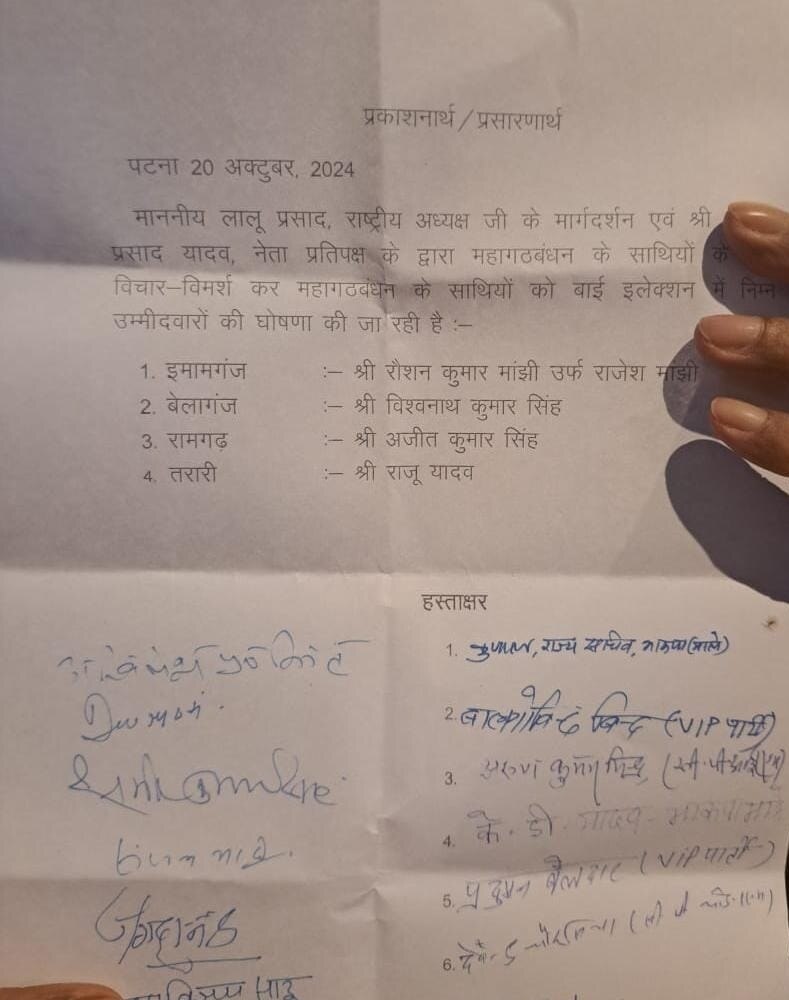 प्रकाशनार्थ / प्रसारणार्थ
पटना 20 अक्टुबर, 2024
माननीय लालू प्रसाद, राष्ट्रीय अध्यक्ष जी के मार्गदर्शन एवं श्री
प्रसाद यादव, नेता प्रतिपक्ष के द्वारा महागठबंधन के साथियों के
विचार–विमर्श कर महागठबंधन के साथियों को बाई इलेक्शन में निम्न
उम्मीदवारों की घोषणा की जा रही है :–
1. इमामगंज :– श्री रौशन कुमार मांझी उर्फ राजेश मांझी
2. बेलागंज :– श्री विश्वनाथ कुमार सिंह
3. रामगढ़ :– श्री अजीत कुमार सिंह
4. तरारी :– श्री राजू यादव
हस्ताक्षर
1. कुणाल, राज्य सचिव, भाकपा(माले)
2. बालगोविन्द बिन्द (VIP पार्टी)
3. अरुण कुमार
4. के. डी. यादव
5. (VIP पार्टी)
6.
जगदानंद